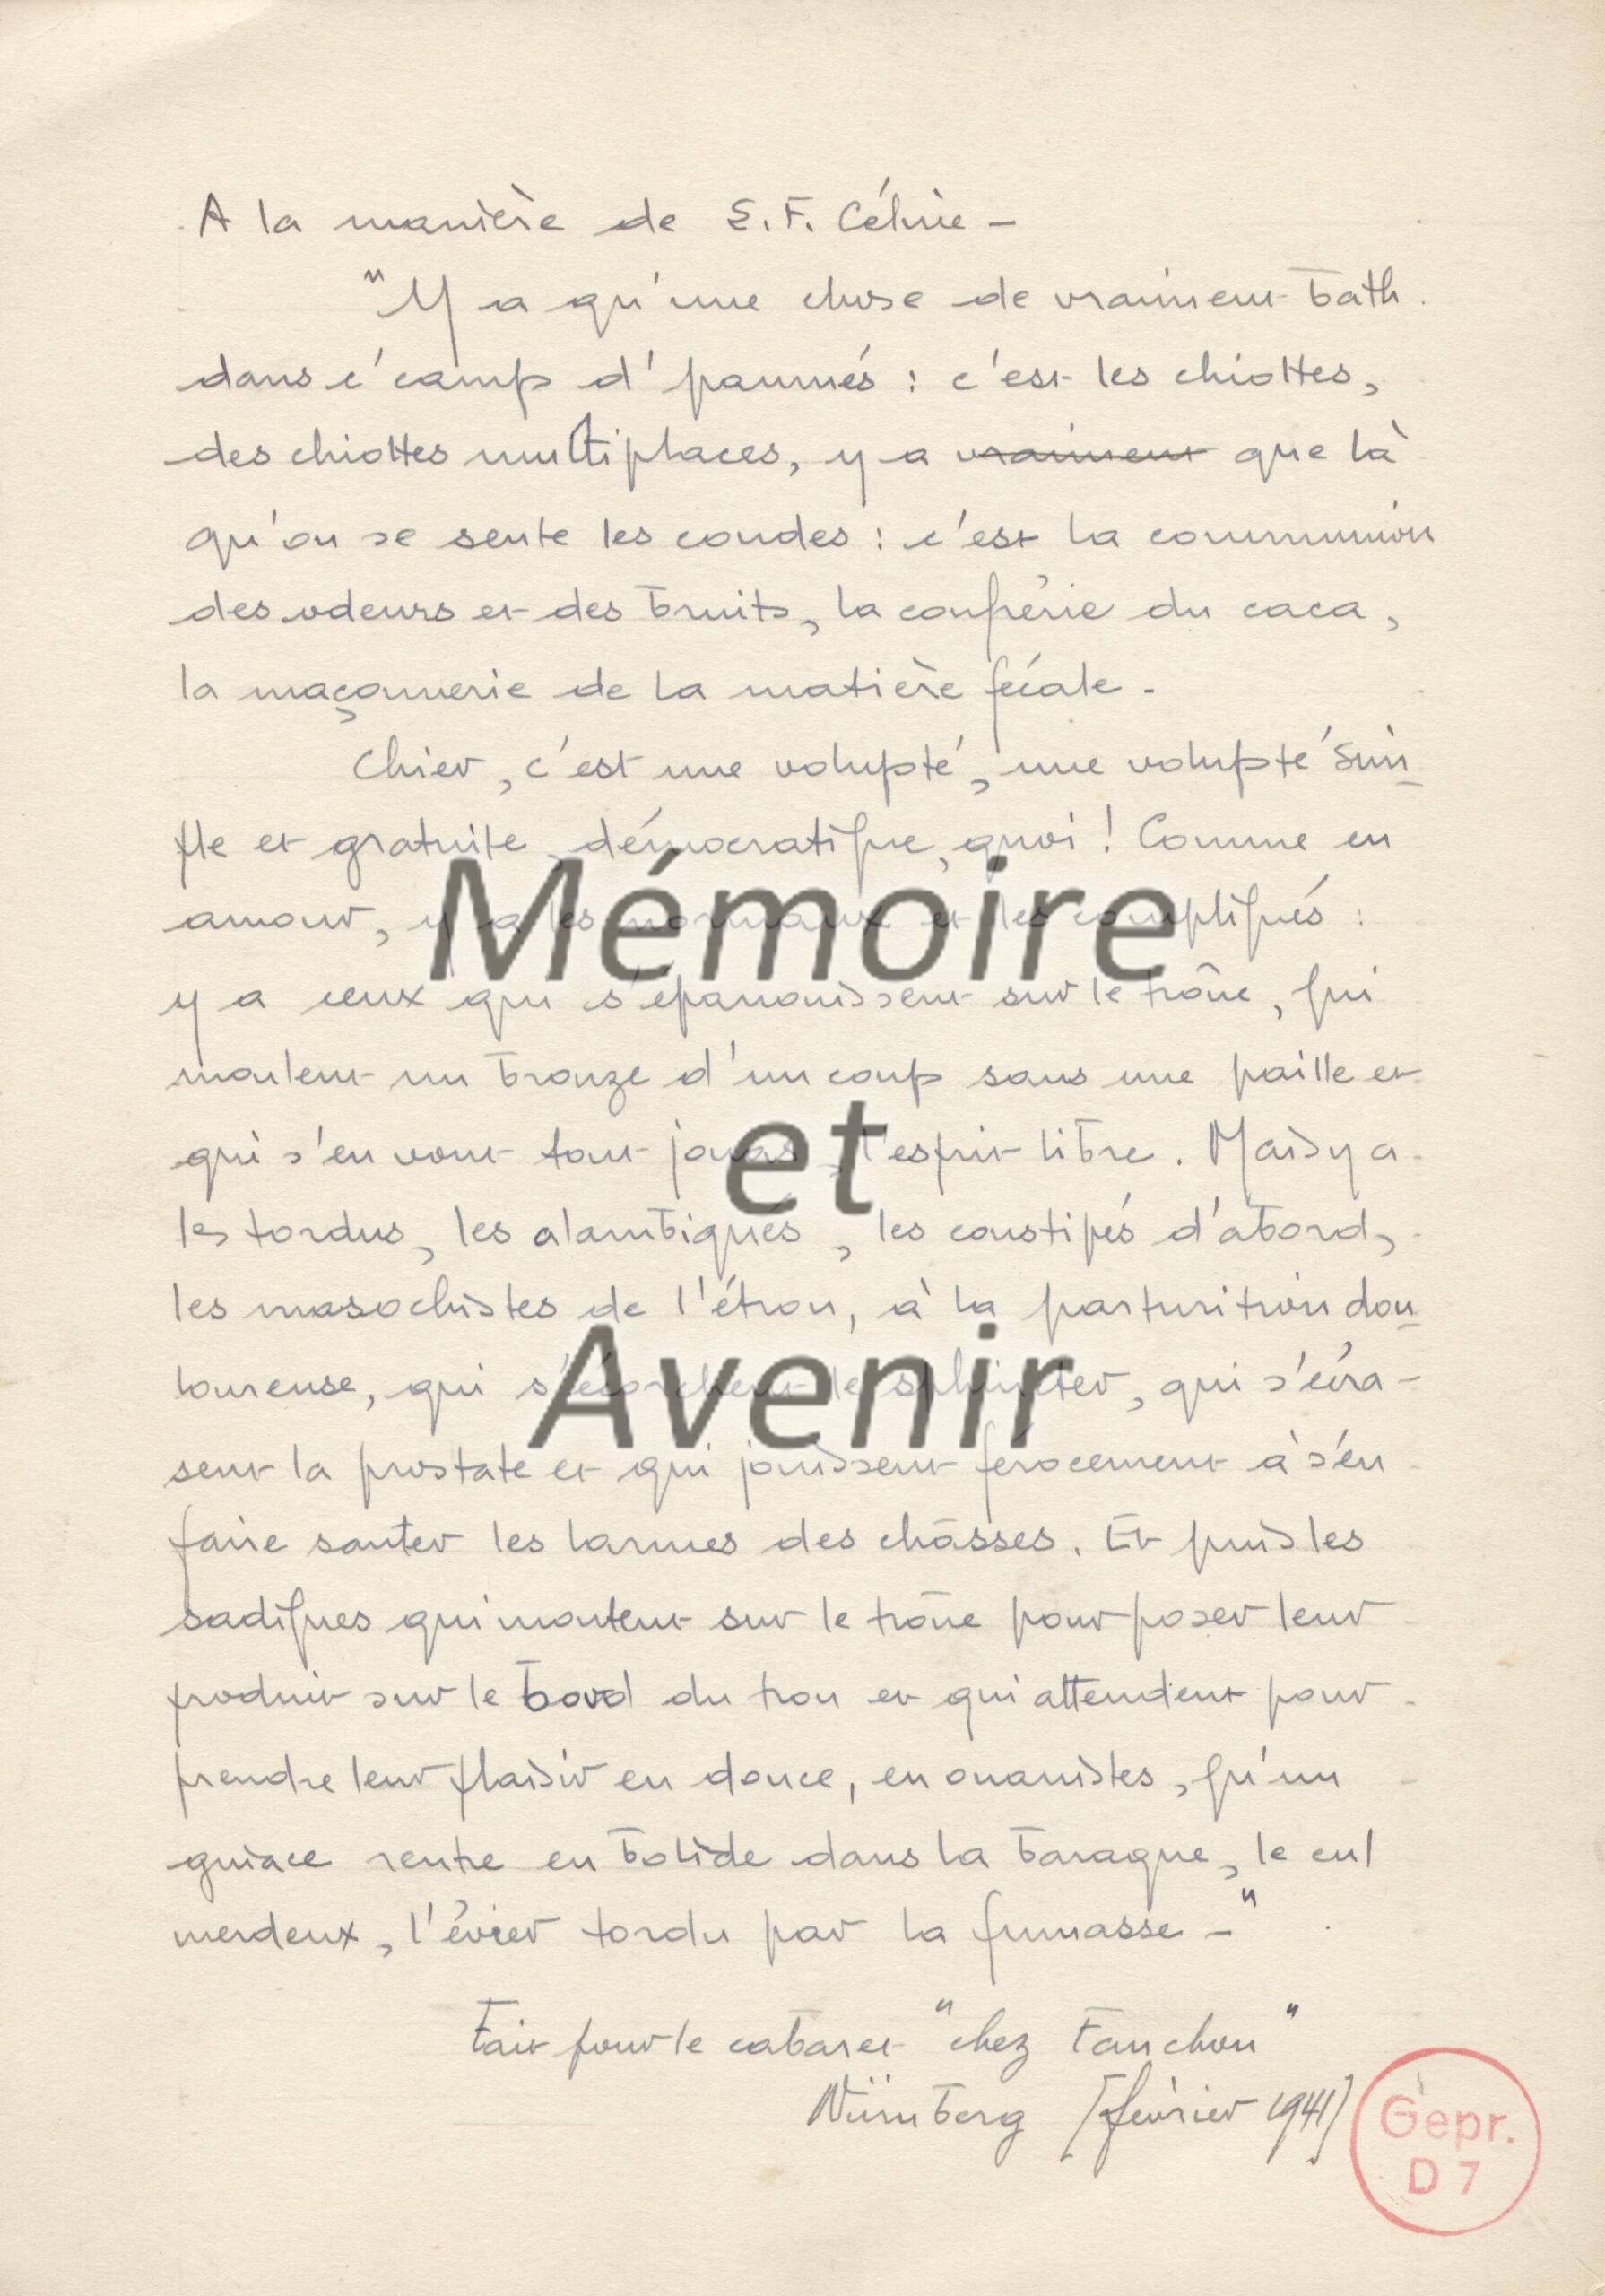 A la manière de E. F. Céline -
"Y a qu'une chose de vraiment bath
dans c'camp d'paumés : c'est les chiottes,
des chiottes multiplaces, y a vraiment que là
qu'on se sente les coudes : c'est la communion
des odeurs et des bruits, la confrérie du caca,
la maçonnerie de la matière fécale -
Chier, c'est une volupté, une volupté sim-
ple et gratuite, démocratique, quoi ! Comme en
amour, y a les normaux et les compliqués :
y a ceux qui s'épanouissent sur le trône, qui
moulent un bronze d'un coup sans une paille et
qui s'en vont tout jouas, l'esprit libre. Mais y a
les tordus, les alambiqués, les constipés d'abord,
les masochistes de l'étron, à la parturition dou-
loureuse, qui s'écorchent le sphincter, qui s'écra-
sent la prostate et qui jouissent férocement à s'en
faire sauter les larmes des châsses. Et puis les
sadiques qui montent sur le trône pour poser leur
produit sur le bord du trou et qui attendent pour
prendre leur plaisir en douce, en onanistes, qu'un
gniace rentre en bolide dans la baraque, le cul
merdeux, l'évier tordu par la fumasse -"
Fait pour le cabaret "chez Fanchon"
Nürnberg [février 1941]
Gepr.
D 7
Mémoire
et
Avenir